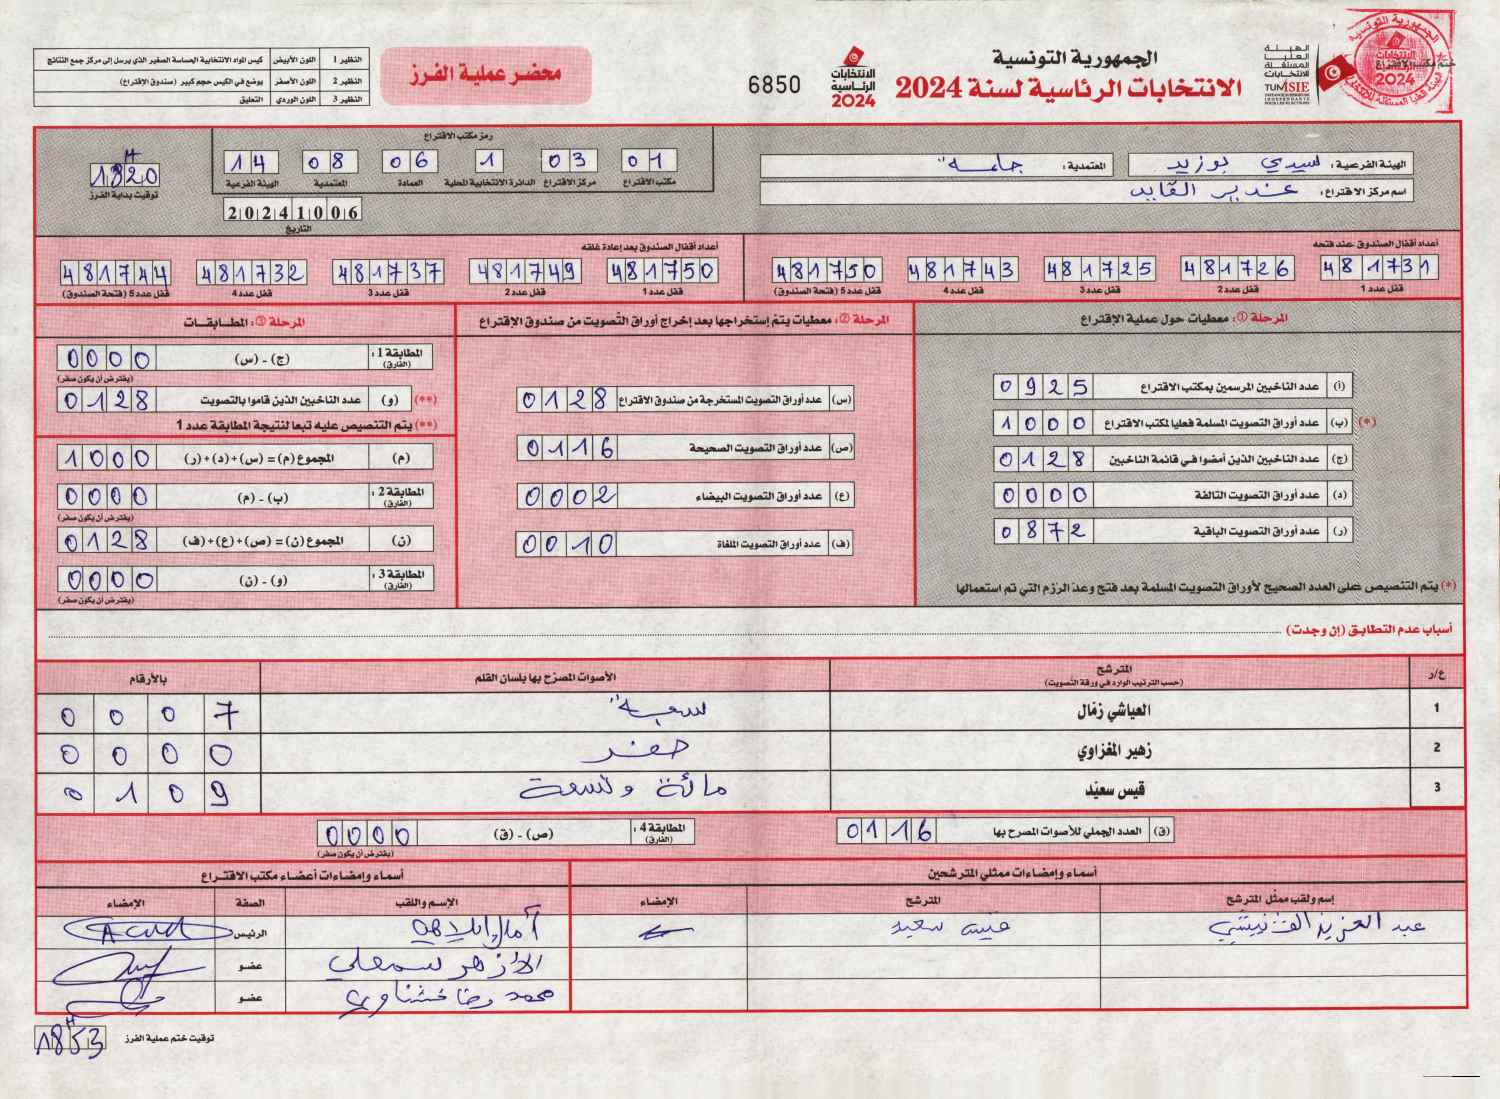 الجمهورية التونسية
الانتخابات الرئاسية لسنة 2024
الهيئة العليا المستقلة للانتخابات
TUNISIE
INSTANCE SUPERIEURE INDEPENDANTE POUR LES ELECTIONS
ختم مكتب الاقتراع
الجمهورية التونسية
الانتخابات الرئاسية 2024
الانتخابات الرئاسية 2024
6850
محضر عملية الفرز
النظير 1 اللون الأبيض كيس المواد الانتخابية الحساسة الصغير الذي يرسل إلى مركز جمع النتائج
النظير 2 اللون الأصفر يوضع في الكيس حجم كبير (صندوق الاقتراع)
النظير 3 اللون الوردي التعليق
الهيئة الفرعية: سيدي بوزيد المعتمدية: جلمة
اسم مركز الاقتراع: غدير القايد
رمز مكتب الاقتراع
01 03 1 06 08 14
مكتب الاقتراع مركز الاقتراع الدائرة الانتخابية المحلية العمادة المعتمدية الهيئة الفرعية
20241006
التاريخ
18H20
توقيت بداية الفرز
أعداد أقفال الصندوق عند فتحه
481731 481726 481725 481743 481750
قفل عدد 1 قفل عدد 2 قفل عدد 3 قفل عدد 4 قفل عدد 5 (فتحة الصندوق)
أعداد أقفال الصندوق بعد إعادة غلقه
481750 481749 481737 481732 481744
قفل عدد 1 قفل عدد 2 قفل عدد 3 قفل عدد 4 قفل عدد 5 (فتحة الصندوق)
المرحلة ①: معطيات حول عملية الإقتراع
(أ) عدد الناخبين المرسمين بمكتب الاقتراع 0925
(*) (ب) عدد أوراق التصويت المسلمة فعليا لمكتب الاقتراع 1000
(ج) عدد الناخبين الذين أمضوا في قائمة الناخبين 0128
(د) عدد أوراق التصويت التالفة 0000
(ر) عدد أوراق التصويت الباقية 0872
(*) يتم التنصيص على العدد الصحيح لأوراق التصويت المسلمة بعد فتح وعد الرزم التي تم استعمالها
المرحلة ②: معطيات يتم إستخراجها بعد إخراج أوراق التصويت من صندوق الإقتراع
(س) عدد أوراق التصويت المستخرجة من صندوق الاقتراع 0128
(ص) عدد أوراق التصويت الصحيحة 0116
(ع) عدد أوراق التصويت البيضاء 0002
(ف) عدد أوراق التصويت الملغاة 0010
المرحلة ③: المطابقات
المطابقة 1: (الفارق) (ج) - (س) 0000
(يفترض أن يكون صفر)
(**) (و) عدد الناخبين الذين قاموا بالتصويت 0128
(**) يتم التنصيص عليه تبعا لنتيجة المطابقة عدد 1
(م) المجموع (م) = (س) + (د) + (ر) 1000
المطابقة 2: (الفارق) (ب) - (م) 0000
(يفترض أن يكون صفر)
(ن) المجموع (ن) = (ص) + (ع) + (ف) 0128
المطابقة 3: (الفارق) (و) - (ن) 0000
(يفترض أن يكون صفر)
أسباب عدم التطابق (إن وجدت)
ع/ر المترشح (حسب الترتيب الوارد في ورقة التصويت) الأصوات المصرّح بها بلسان القلم بالأرقام
1 العياشي زمّال سبعة 0007
2 زهير المغزاوي صفر 0000
3 قيس سعيّد مائة وتسعة 0109
(ق) العدد الجملي للأصوات المصرح بها 0116
المطابقة 4: (الفارق) (ص) - (ق) 0000
(يفترض أن يكون صفر)
أسماء وإمضاءات ممثلي المترشحين
إسم ولقب ممثل المترشح المترشح الإمضاء
عبد العزيز قيس سعيد
أسماء وإمضاءات أعضاء مكتب الاقتراع
الإسم واللقب الصفة الإمضاء
آمال الرئيس
الأزهر سمعلي عضو
محمد رضا خشناوي عضو
توقيت ختم عملية الفرز 18H53